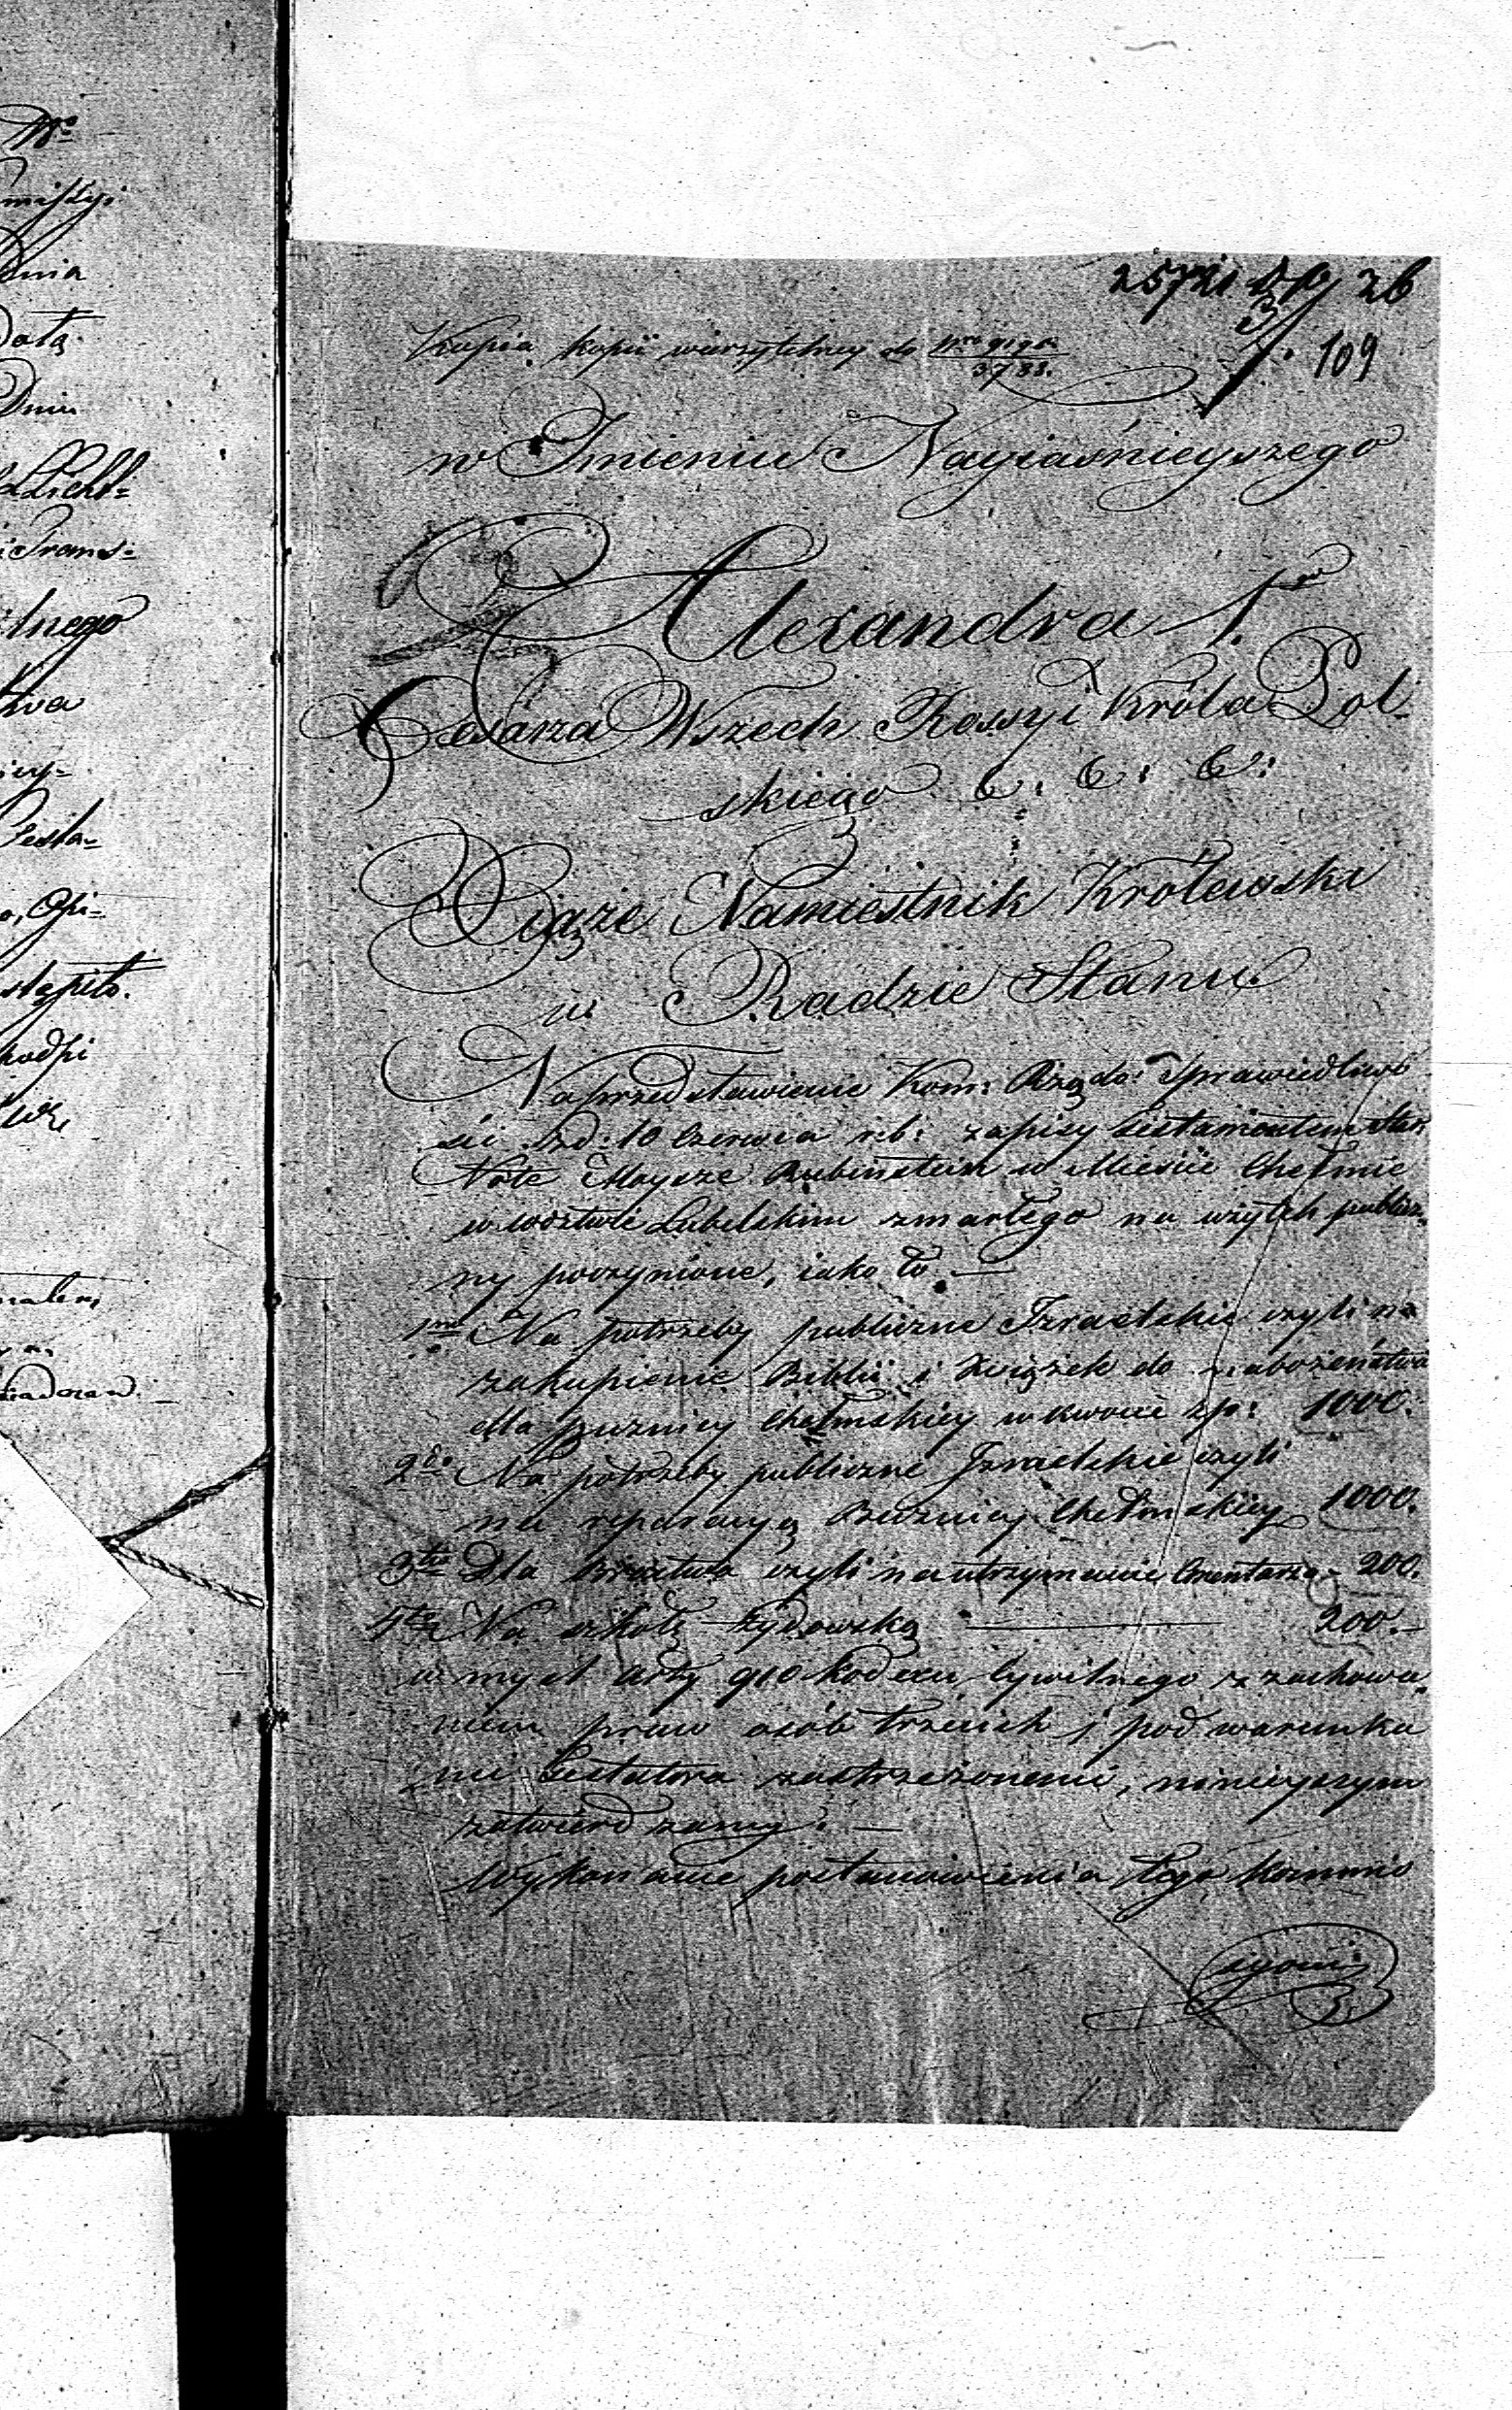 Wo
missyi
Dnia
Data
Dniu
Trans=
lnego
twa
icy=
Testa=
stąpiło.
podpi
26
109
Kopia kopii wierzytelney do Nro 9190.
3788.
w Imieniu Nayiaśnieyszego
Alexandra 1go
Cesarza Wszech Rossyi Króla Pol-
skiego &: &: &:
Xiąże Namiestnik Królewski
w Radzie Stanu.
Na przedstawienie Kom: Rządo: Sprawiedliwo
ści z d: 10 Czerwca r.b: zapisy testamentem
Note Moysze Rubinstein w Mieście Chełmie
w wodztwie Lubelskim zmarłego na użytek publicz=
ny poczynione, iako to. —
1mo Na potrzeby publiczne Izraelskie czyli na
zakupienie Biblii i Xiążek do nabożeństwa
dla buznicy Chełmskiey w kwocie zp: 1000.
2do Na potrzeby publiczne Izraelskie czyli
na reparacyą Buznicy Chełmskiey 1000.
3tio Dla Bractwa czyli na utrzymanie Cmentarza - 200.
4to Na szkołę żydowską — 200.-
w myśl arty 910 kodexu Cywilnego z zachowa=
niem praw osób trzecich i pod warunka
mi Testatora zastrzeżonemi, ninieyszym
zatwierdzamy. —
Wykonanie postanowienia tego kommis
syowi